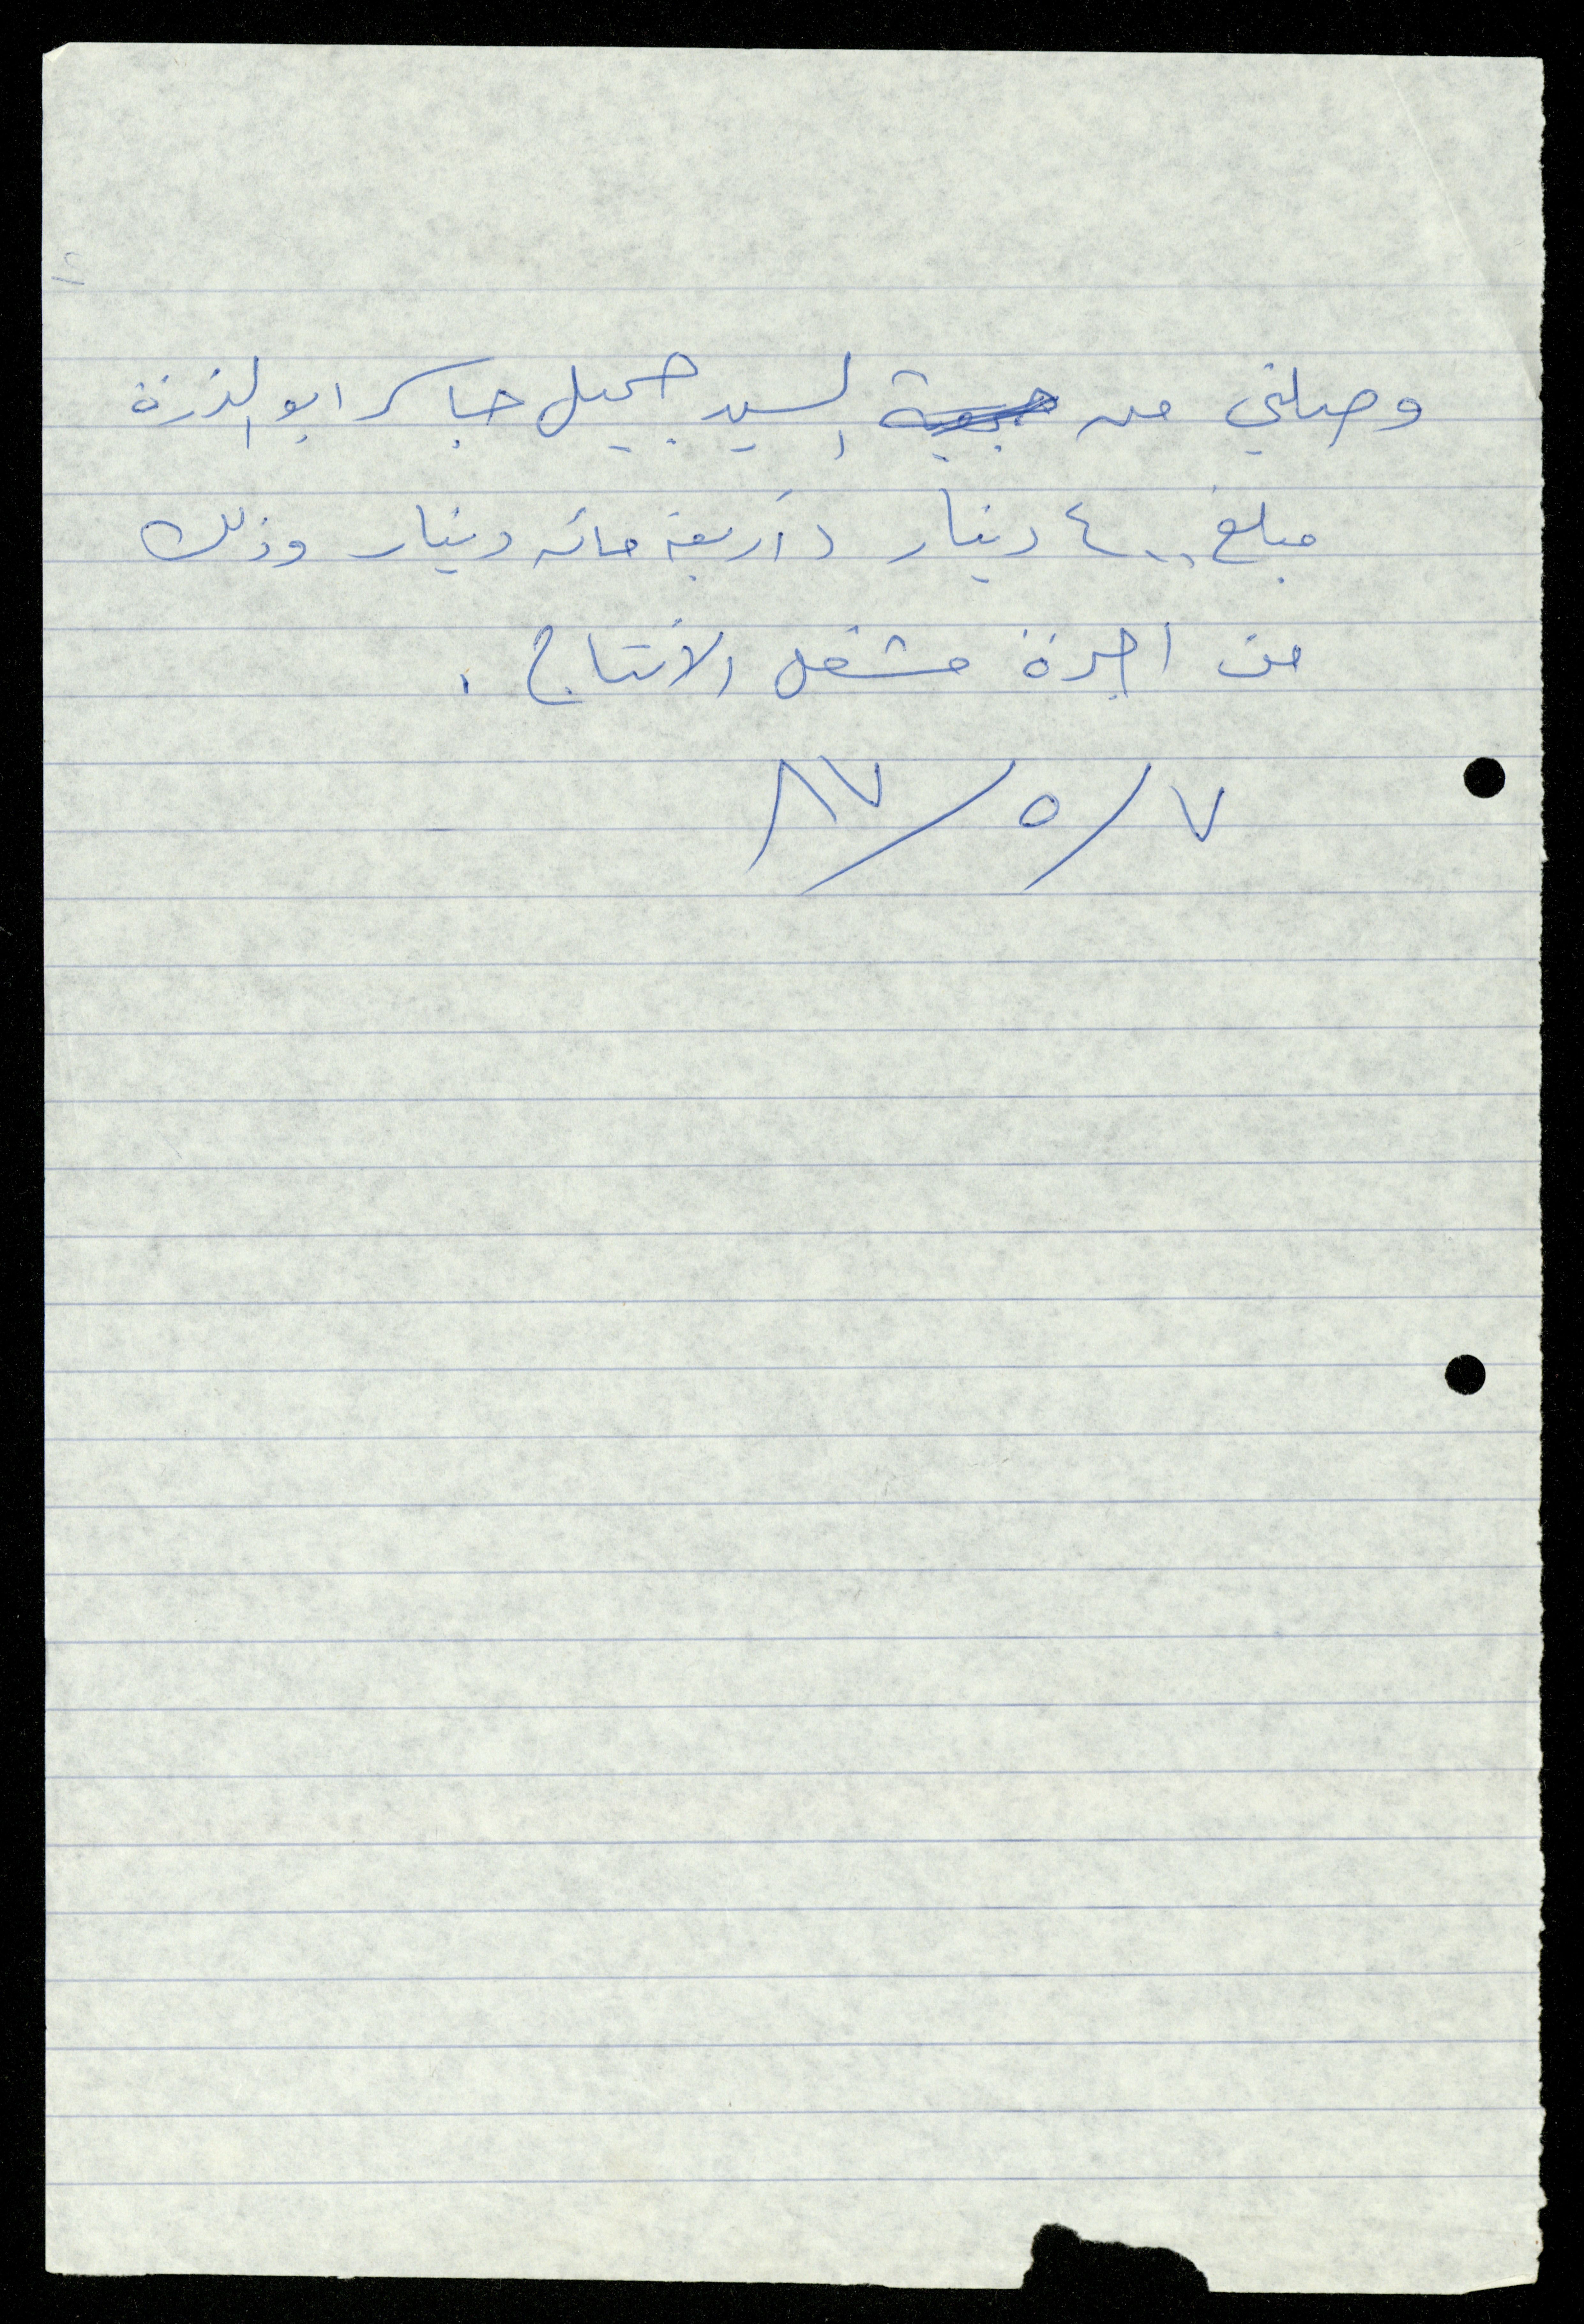 وصلني من السيد جميل جابر ابو الذرة
مبلغ ٤٠٠ دينار (أربعة مائة دينار وذلك
من اجرة مشغل الانتاج .
٧/٥/٨٧